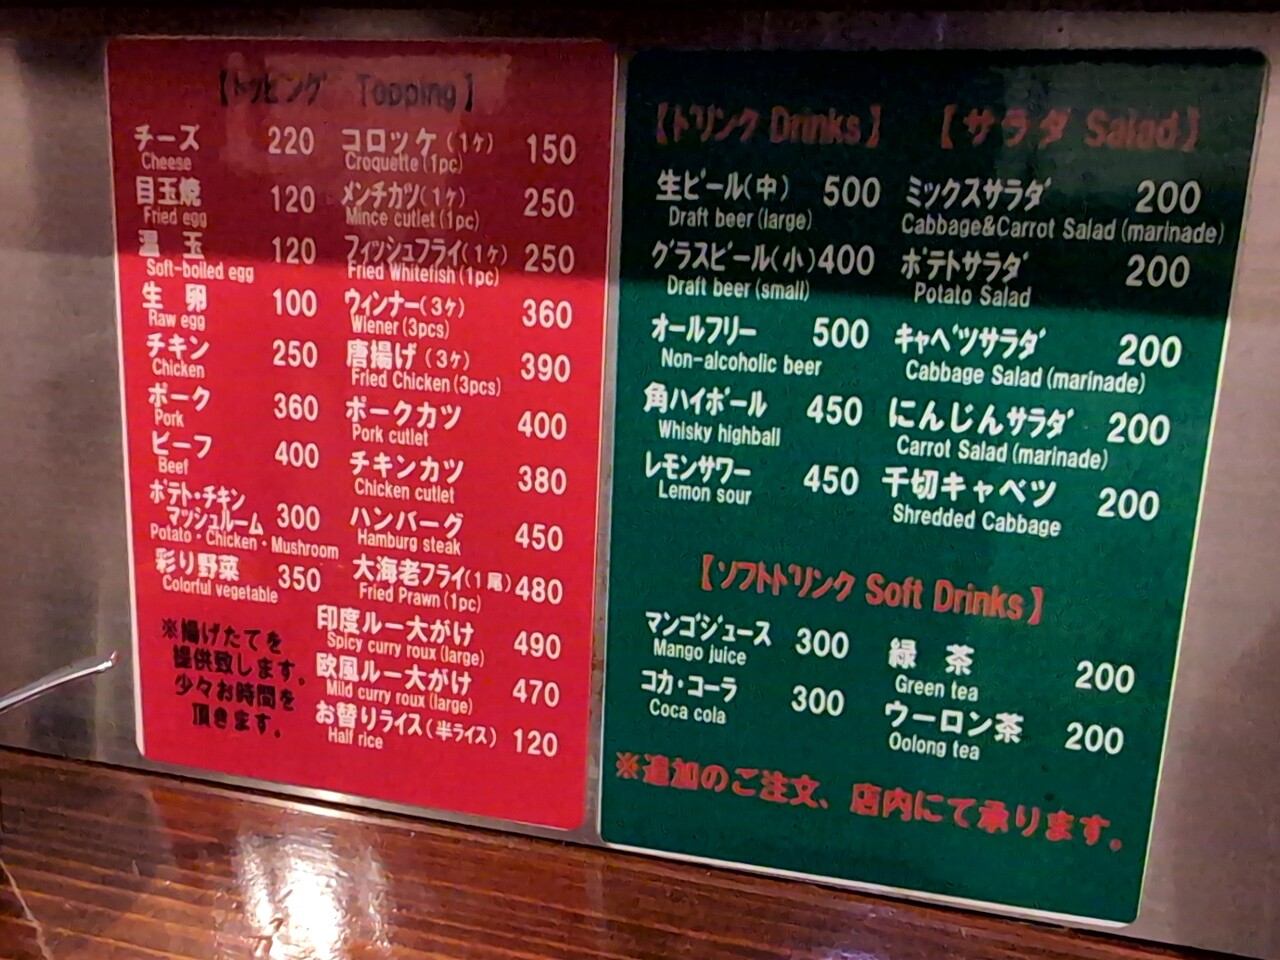 【トッピング Topping】
チーズ 220
Cheese
目玉焼 120
Fried egg
温玉 120
Soft-boiled egg
生卵 100
Raw egg
チキン 250
Chicken
ポーク 360
Pork
ビーフ 400
Beef
ポテト・チキン
マッシュルーム 300
Potato・Chicken・Mushroom
彩り野菜 350
Colorful vegetable
※揚げたてを
提供致します。
少々お時間を
頂きます。
コロッケ(1ヶ) 150
Croquette(1pc)
メンチカツ(1ヶ) 250
Mince cutlet(1pc)
フィッシュフライ(1ヶ) 250
Fried Whitefish(1pc)
ウィンナー(3ヶ) 360
Wiener(3pcs)
唐揚げ(3ヶ) 390
Fried Chicken(3pcs)
ポークカツ 400
Pork cutlet
チキンカツ 380
Chicken cutlet
ハンバーグ 450
Hamburg steak
大海老フライ(1尾) 480
Fried Prawn(1pc)
印度ルー大がけ 490
Spicy curry roux(large)
欧風ルー大がけ 470
Mild curry roux(large)
お替りライス(半ライス) 120
Half rice
【ドリンク Drinks】
生ビール(中) 500
Draft beer(large)
グラスビール(小) 400
Draft beer(small)
オールフリー 500
Non-alcoholic beer
角ハイボール 450
Whisky highball
レモンサワー 450
Lemon sour
【サラダ Salad】
ミックスサラダ 200
Cabbage&Carrot Salad(marinade)
ポテトサラダ 200
Potato Salad
キャベツサラダ 200
Cabbage Salad(marinade)
にんじんサラダ 200
Carrot Salad(marinade)
千切キャベツ 200
Shredded Cabbage
【ソフトドリンク Soft Drinks】
マンゴジュース 300
Mango juice
コカ・コーラ 300
Coca cola
緑茶 200
Green tea
ウーロン茶 200
Oolong tea
※追加のご注文、店内にて承ります。